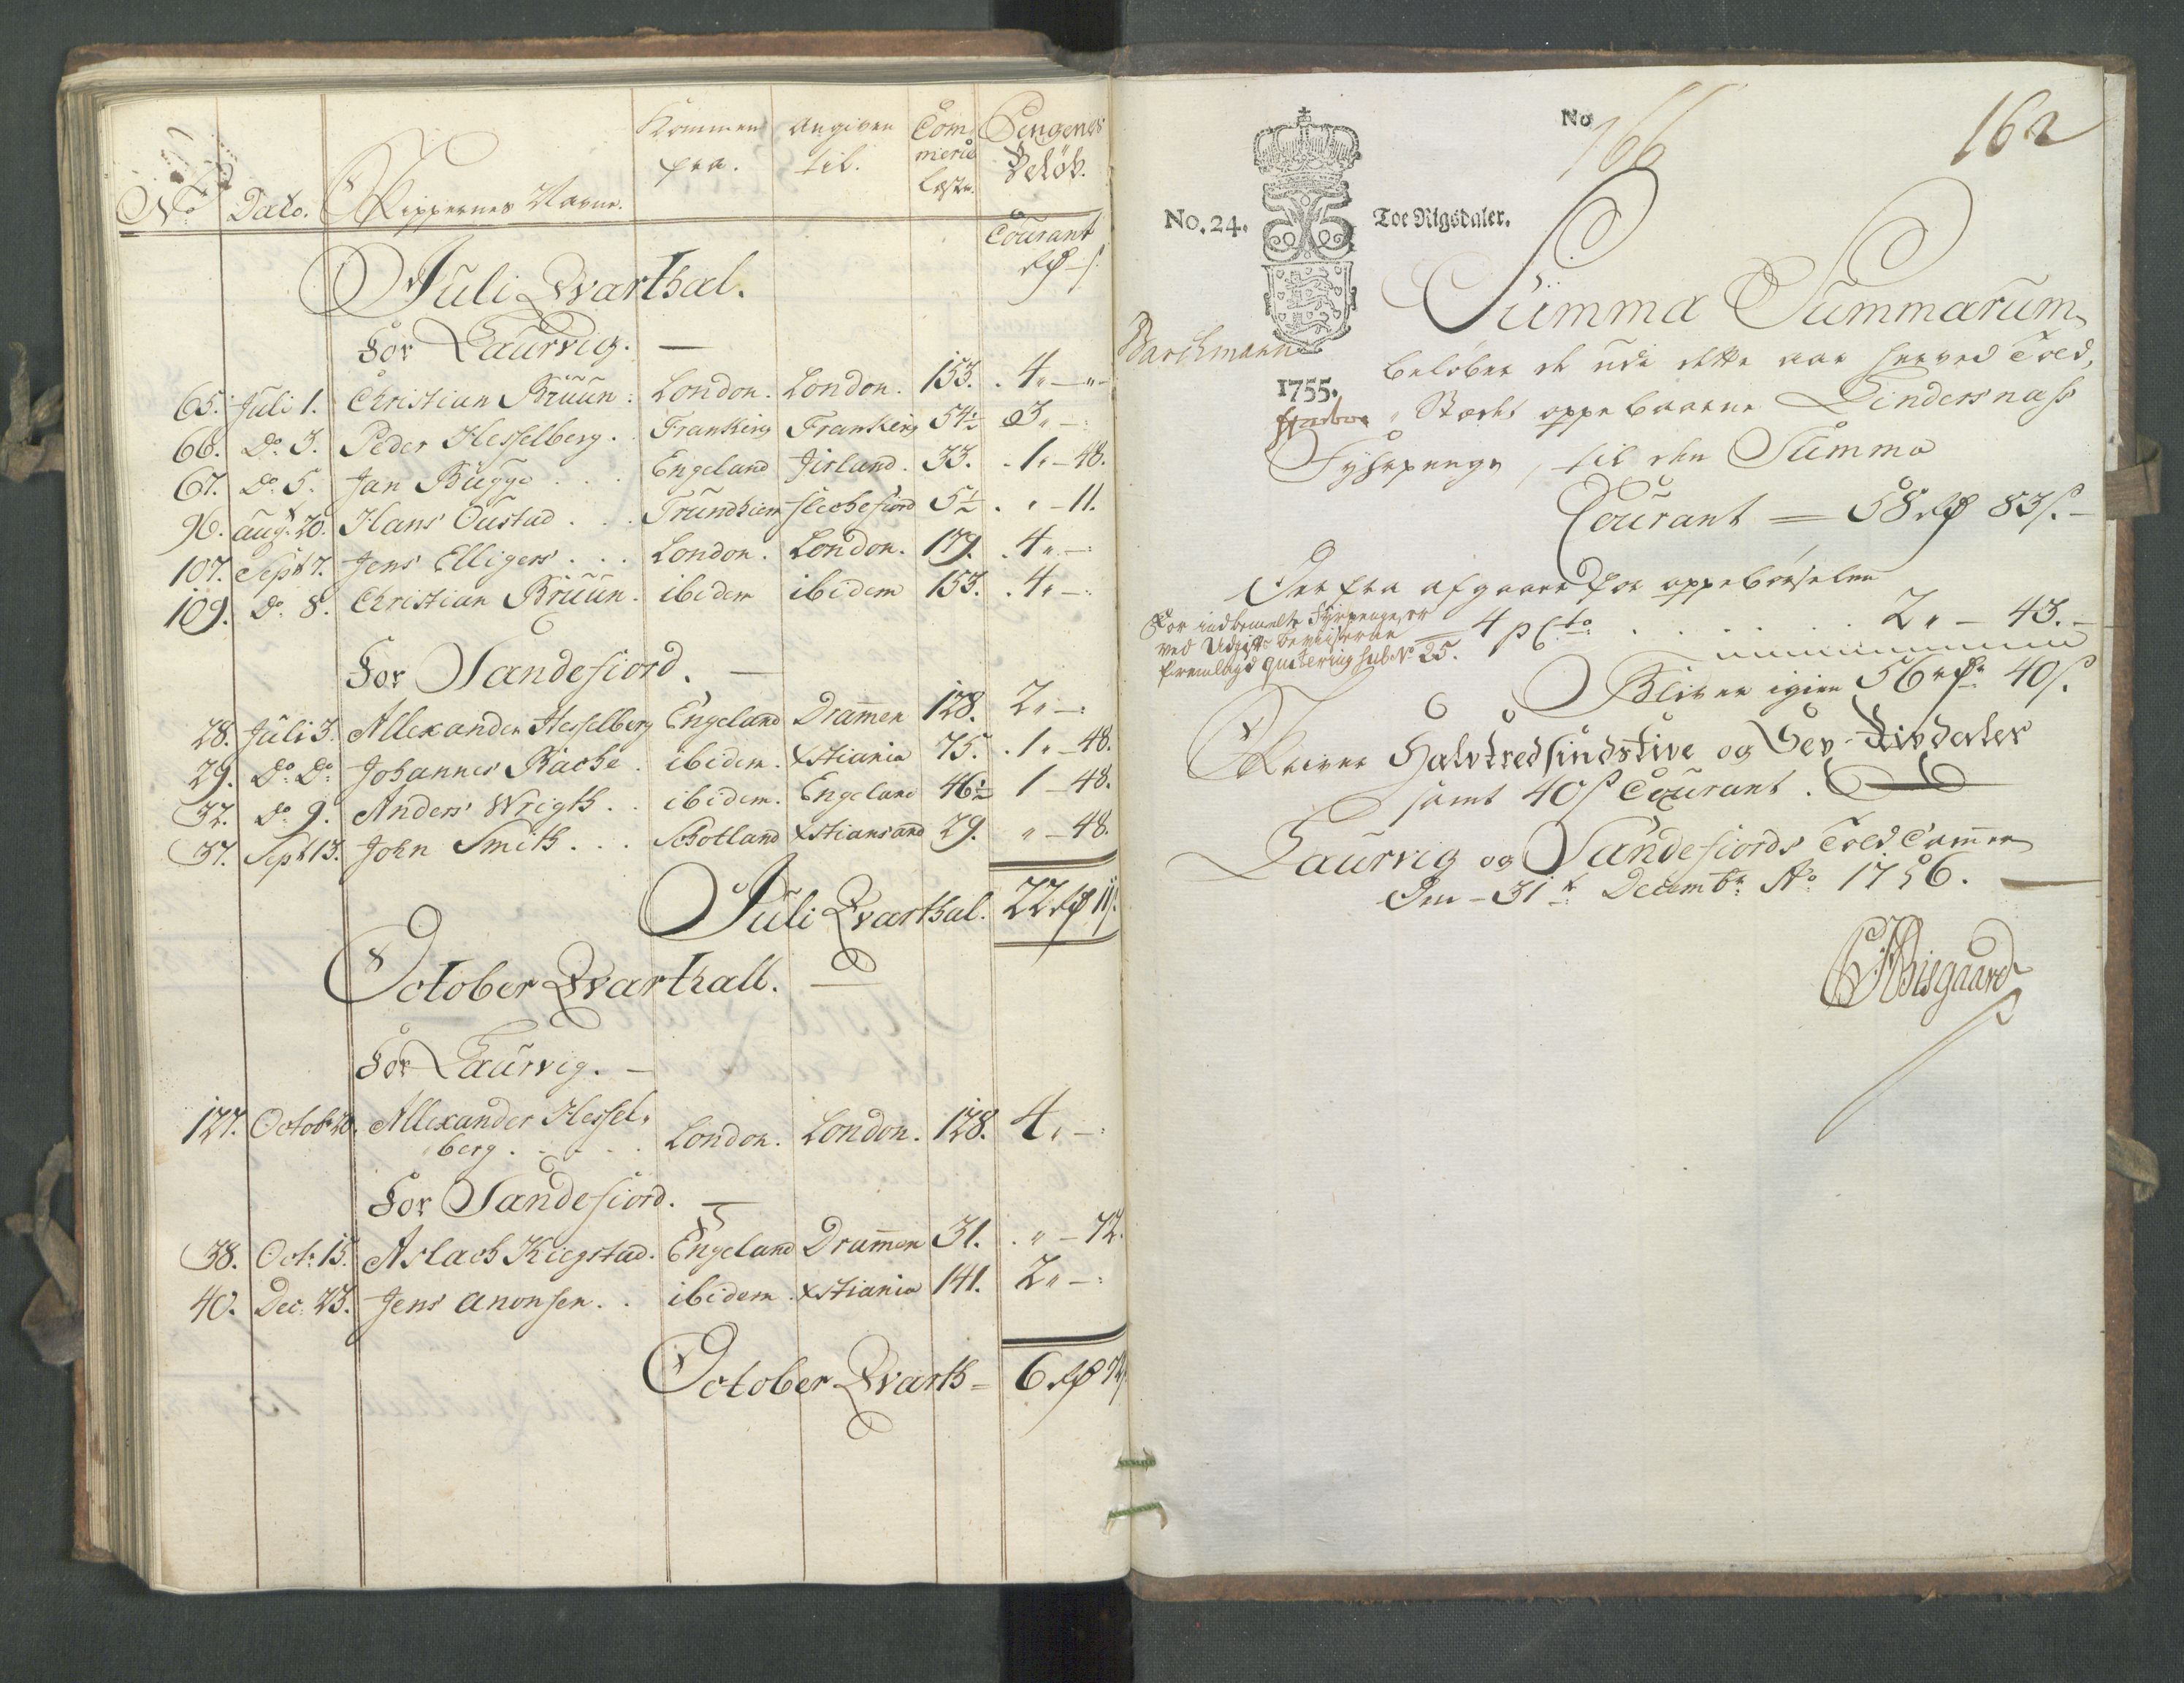 No Dato. Skippernes Navne. Kommen fra. Angiven til. Com mercie Læster. Pengenes Beløb.
Courant
rd – s.
Juli Qvarthal.
For Laurvig. —
65. Juli 1. Christian Bruun. London. London. 153. 4 „ — „
66. Do. 3. Peder Hesselberg. Frankerig Frankerig 54½ 3 „ —
67. Do. 5. Jan Bugge . . . Engeland Jirland. 33. 1 „ – 48.
96. aug. 20. Hans Oustad . . . Trundhiem 5½ „ – 11.
107. Sept 7. Jens Elligers . . . London. London. 179. 4 „ —
109. Do. 8. Christian Bruun. ibidem ibidem 153. 4 „ —
For Sandefiord. —
28. Juli 3. Allexander Hesselberg Engeland Dramen 128. 2 „ —
29. Do. Do. Johannes Bache . ibidem. Xstiania 75. 1 „ – 48.
32. do. 9. Anders Wrigth . . ibidem. Engeland 46½ 1 – 48.
37. Sept 13. John Smith . . . Schotland Xstiansand 29. „ – 48.
Juli Qvarthal. 22 rd 11 s.
October Qvarthall. —
For Laurvig. —
127. Octob 20. Allexander Hessel-
berg . . . . . London. London. 128. 4 „ —
For Sandefiord. —
38. Oct. 15. Aslach Kiegstad. Engeland Dramen 31. „ – 72.
40. Dec. 23. Jens Anonsen . . ibidem. Xstiania 141. 2 „ —
October Qvarth = 6 rd 72
No 166 162
No. 24. Toe Rigsdaler.
Summa Summarum
Barchmann
beløber de udi dette aar herved Told,
1755.
Stædet oppebaarne Lindersnæss
Fyhrpenge, til den Summa
Courant = 58 rd 83 s. –
Der fra afgaar for oppebørselen
For indbemelte Fyrpenge, er
ved Udgifts Beviiserne
fremlagd qvitering sub No 25.
4 p Cto . . . . . 2 „ – 43. –
Bliver igien 56 rd 40 s.
Skriver Halvtredsindstive og Sex Rixdaler
samt 40 s Courant.
Laurvig og Sandefiords Told Cammer
Den 31te Decembr Ao 1756. —
Bisgaard